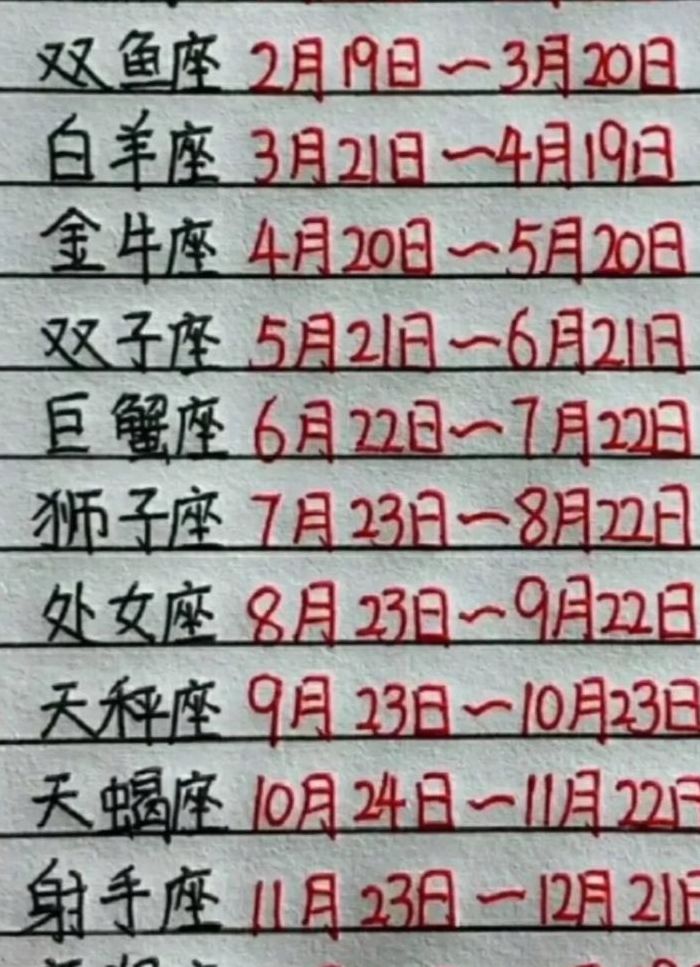 双鱼座 2月19日~3月20日
白羊座 3月21日~4月19日
金牛座 4月20日~5月20日
双子座 5月21日~6月21日
巨蟹座 6月22日~7月22日
狮子座 7月23日~8月22日
处女座 8月23日~9月22日
天秤座 9月23日~10月23日
天蝎座 10月24日~11月22日
射手座 11月23日~12月21日